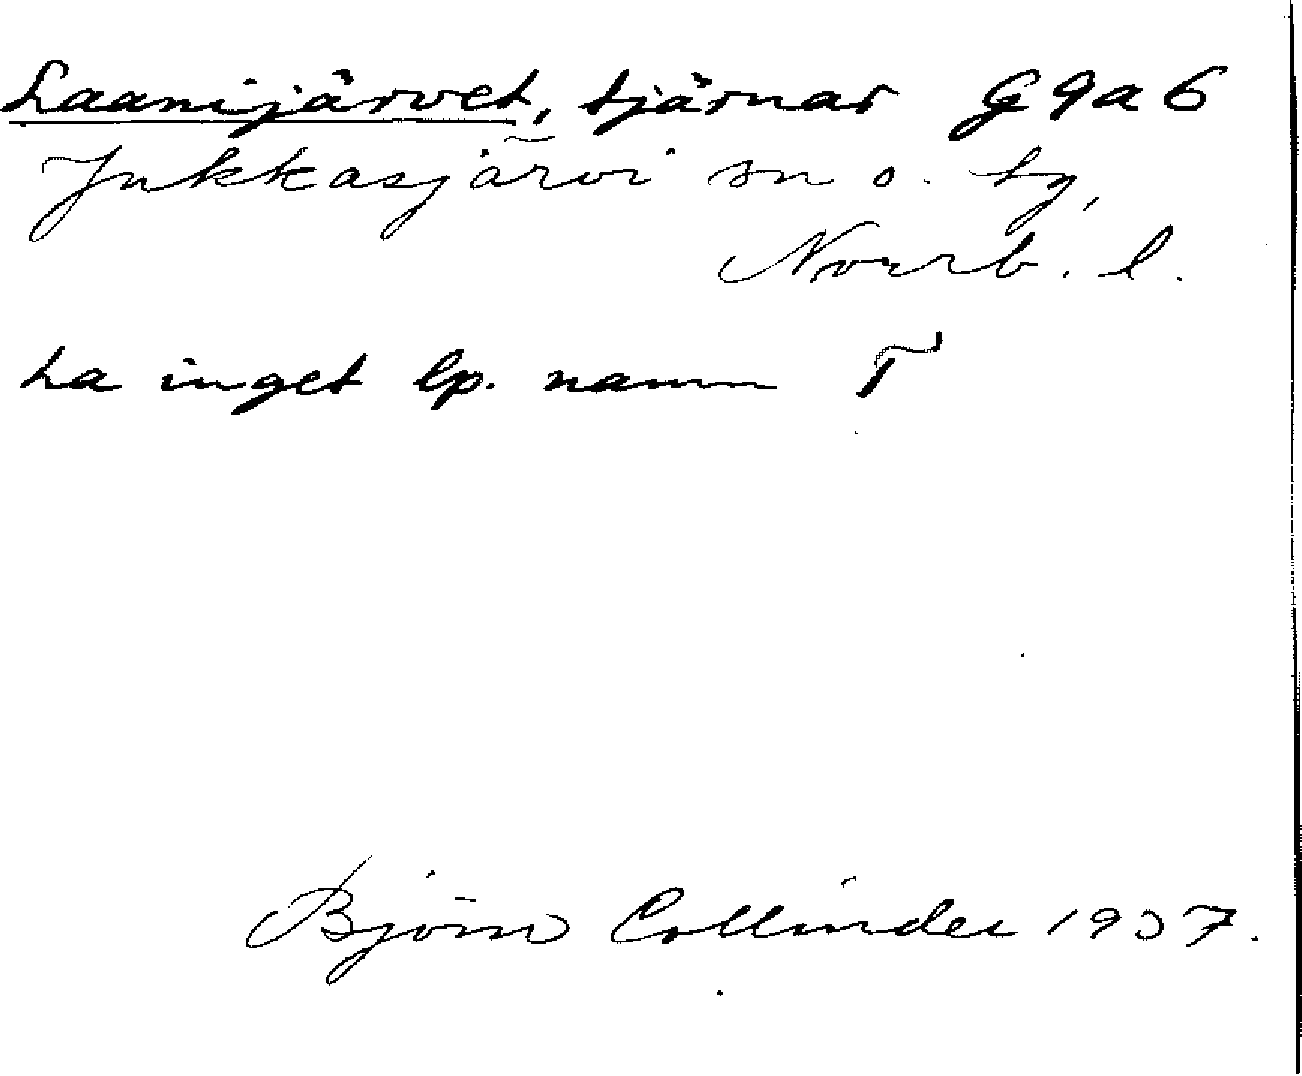 Laanijärvet, tjärnar G9a6
Jukkasjärvi sn o. tg,
Norrb. l.
ha inget lp. namn T
Björn Collinder 1937.